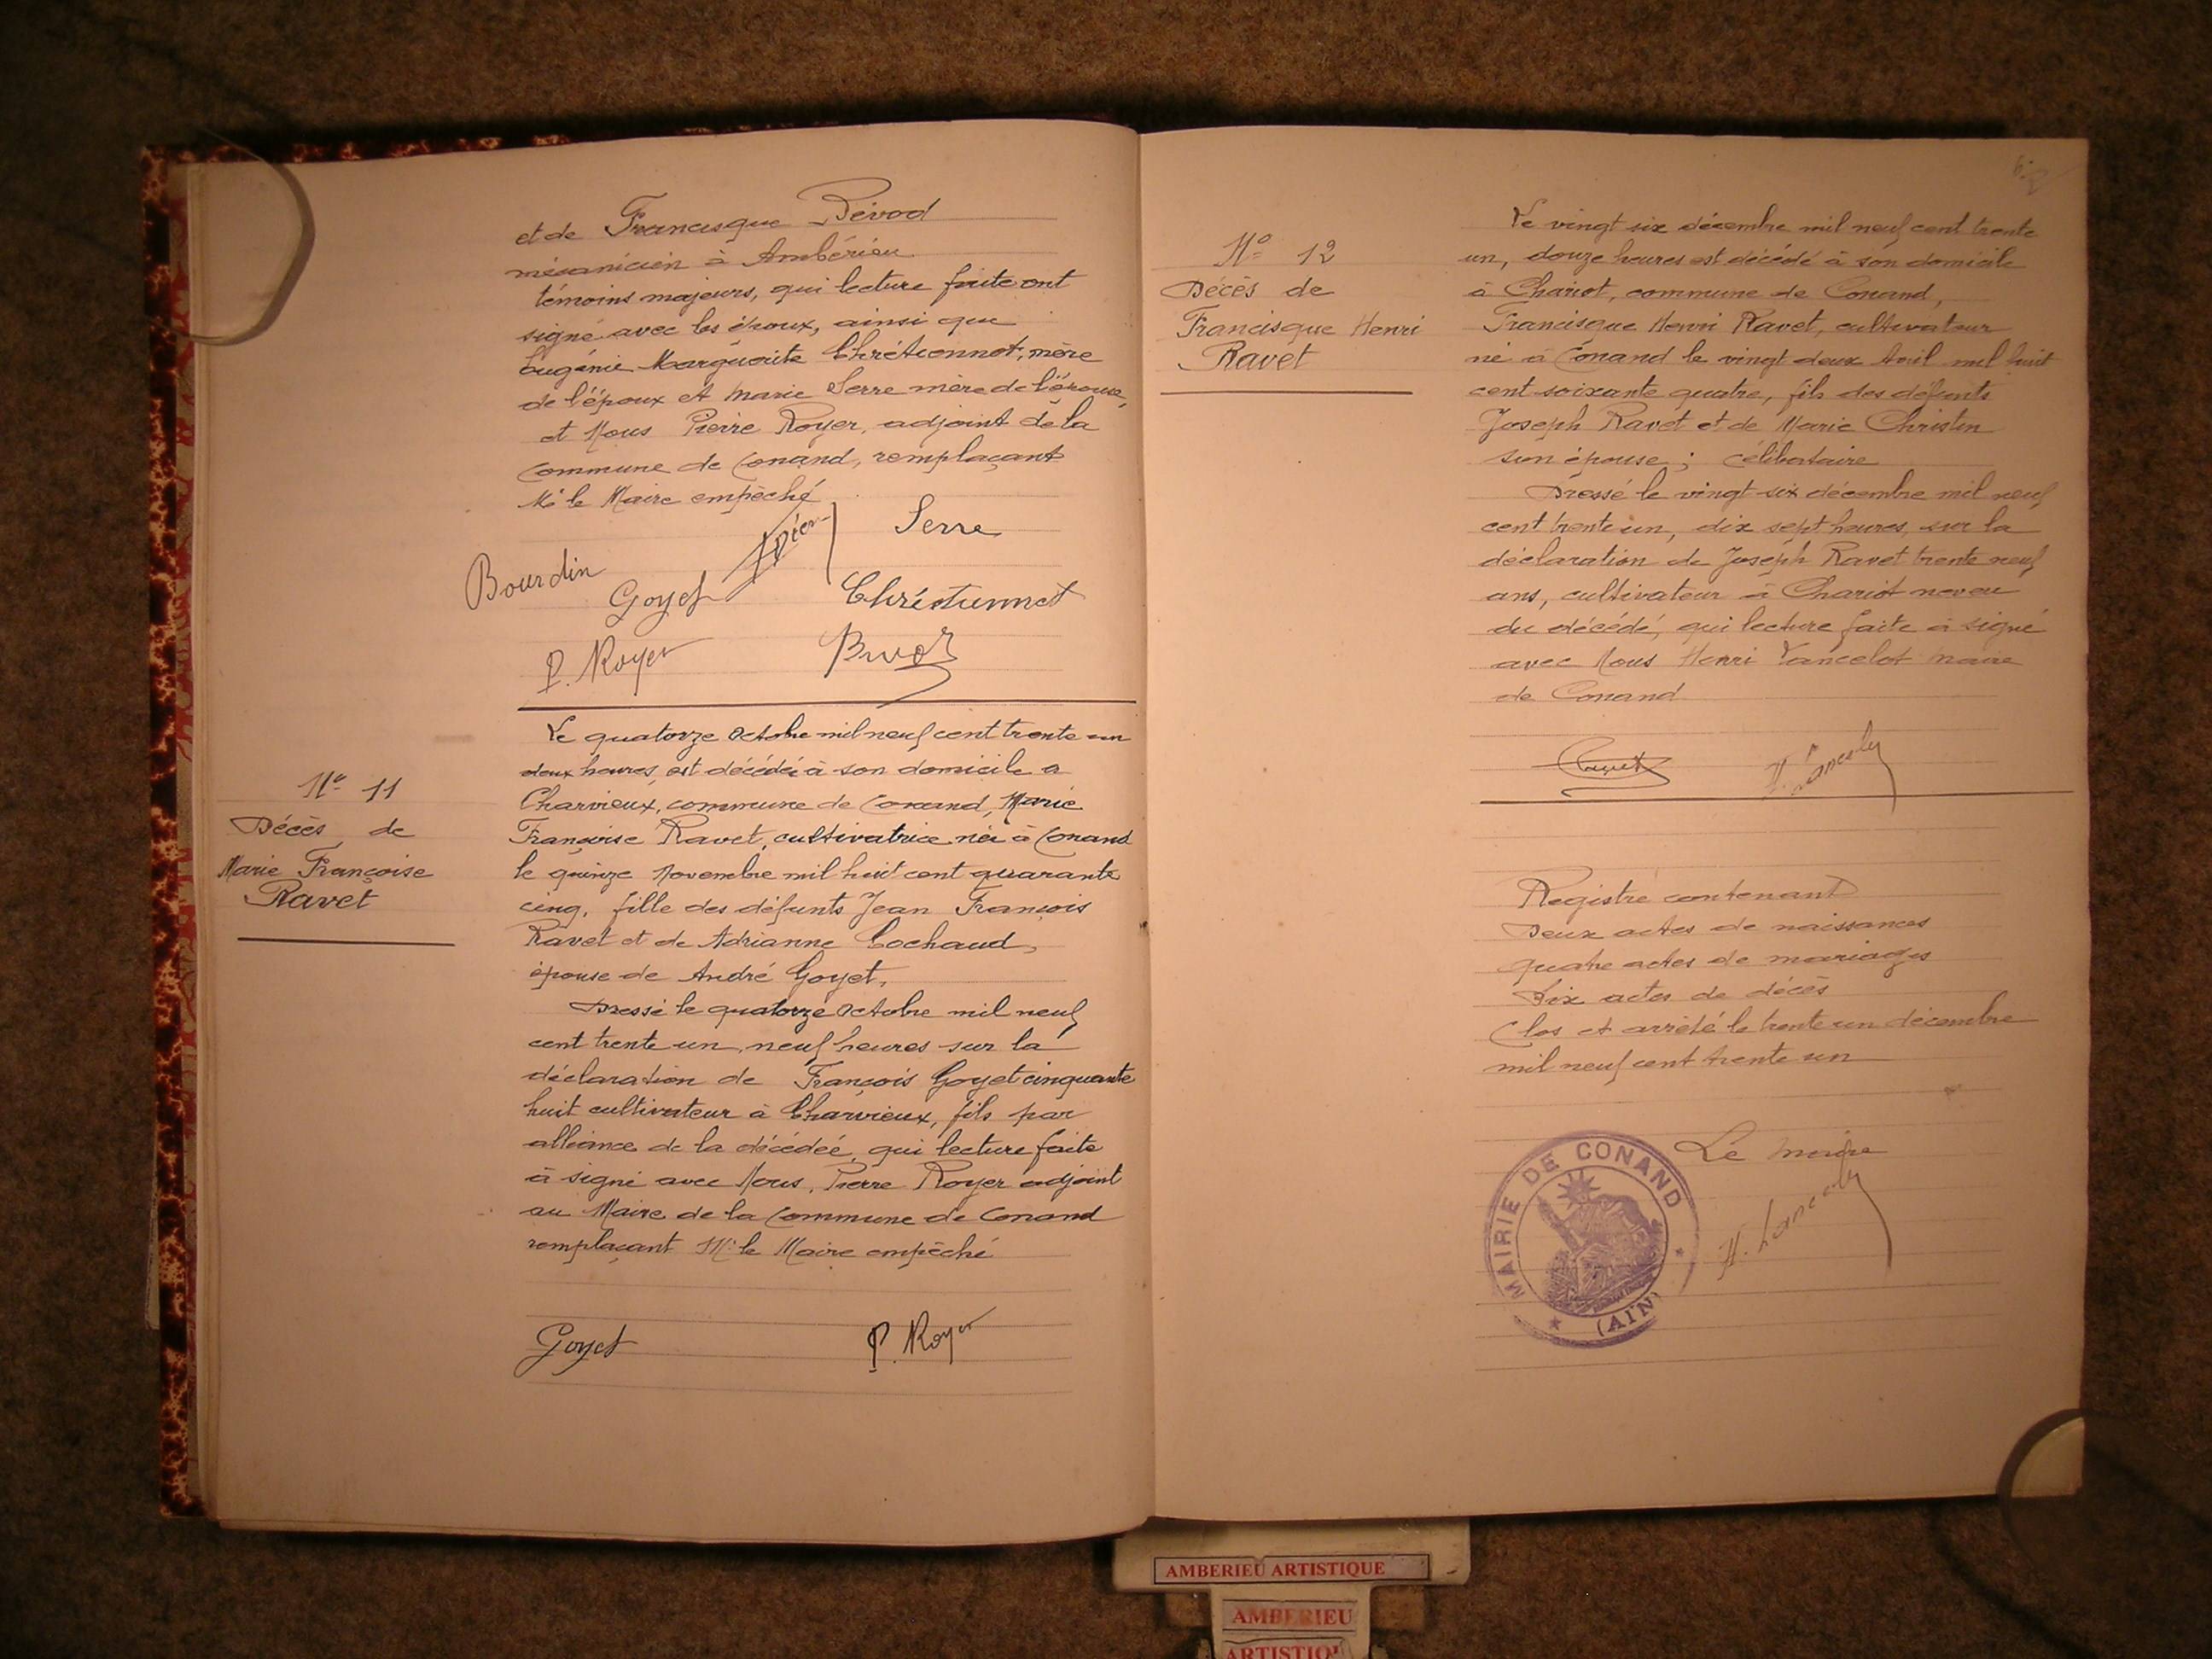 et de Francisque Bévod
mécanicien à Ambérieu
témoins majeurs, qui lecture faite ont
signé avec les époux, ainsi que
Eugénie Marguerite Chrétiennot, mère
de l'époux et Marie Serre mère de l'épouse,
et Nous Pierre Royer, adjoint de la
Commune de Conand, remplaçant
Mr le Maire empêché
Serre
Bourdin
Goyet
Chrétiennot
P. Royer
Nº 11
Décès de
Marie Françoise
Ravet
Le quatorze Octobre mil neuf cent trente un
deux heures, est décédée à son domicile a
Charvieux, commune de Conand, Marie
Françoise Ravet, cultivatrice née à Conand
le quinze Novembre mil huit cent quarante
cinq, fille des défunts Jean François
Ravet et de Adrianne Cochaud,
épouse de André Goyet.
Dressé le quatorze Octobre mil neuf
cent trente un, neuf heures sur la
déclaration de François Goyet cinquante
huit cultivateur à Charvieux, fils par
alliance de la décédée, qui lecture faite
à signé avec Nous, Pierre Royer adjoint
au Maire de la Commune de Conand
remplaçant Mr le Maire empêché
Goyet P. Royer
Nº 12
Décès de
Francisque Henri
Ravet
Le vingt six décembre mil neuf cent trente
un, douze heures est décédé à son domicile
à Chariot, commune de Conand,
Francisque Henri Ravet, cultivateur
né à Conand le vingt deux Avril mil huit
cent soixante quatre, fils des défunts
Joseph Ravet et de Marie Christin
son épouse ; célibataire
Dressé le vingt six décembre mil neuf
cent trente un, dix sept heures, sur la
déclaration de Joseph Ravet trente neuf
ans, cultivateur à Chariot neveu
du décédé, qui lecture faite à signé
avec Nous Henri Lancelot Maire
de Conand
Ravet H. Lancelot
Registre contenant
Deux actes de naissances
quatre actes de mariages
Six actes de décès
Clos et arrêté le trente un décembre
mil neuf cent trente un
Le maire
H. Lancelot
MAIRIE DE CONAND
(AIN)
AMBERIEU ARTISTIQUE
AMBERIEU